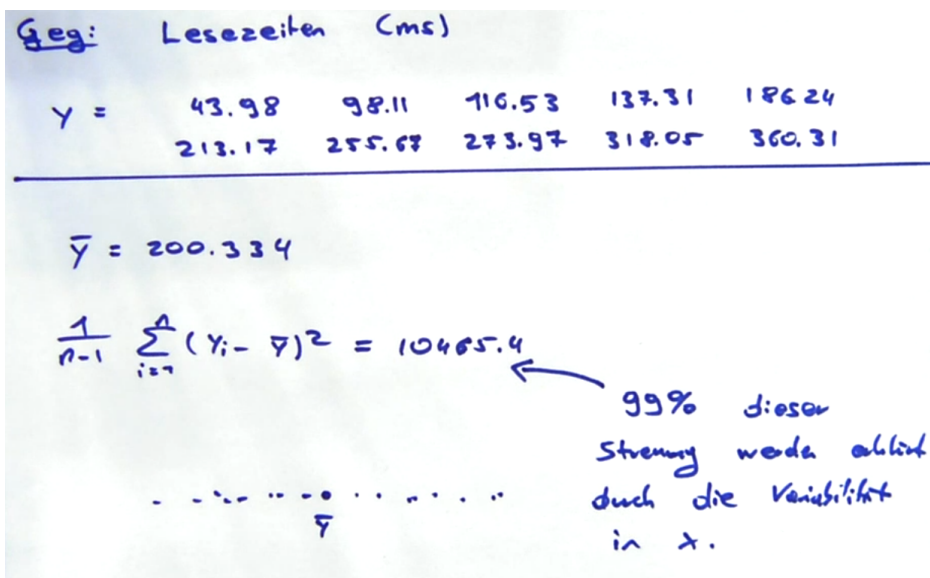 Geg: Lesezeiten (ms)
y = 43.98 98.11 116.53 137.31 186.24
213.17 255.67 273.97 318.05 360.31
ȳ = 200.334
1/(n-1) Σ_{i=1}^{n} (yᵢ - ȳ)² = 10465.4
99% dieser
Streuung werden erklärt
durch die Variabilität
in x.
ȳ